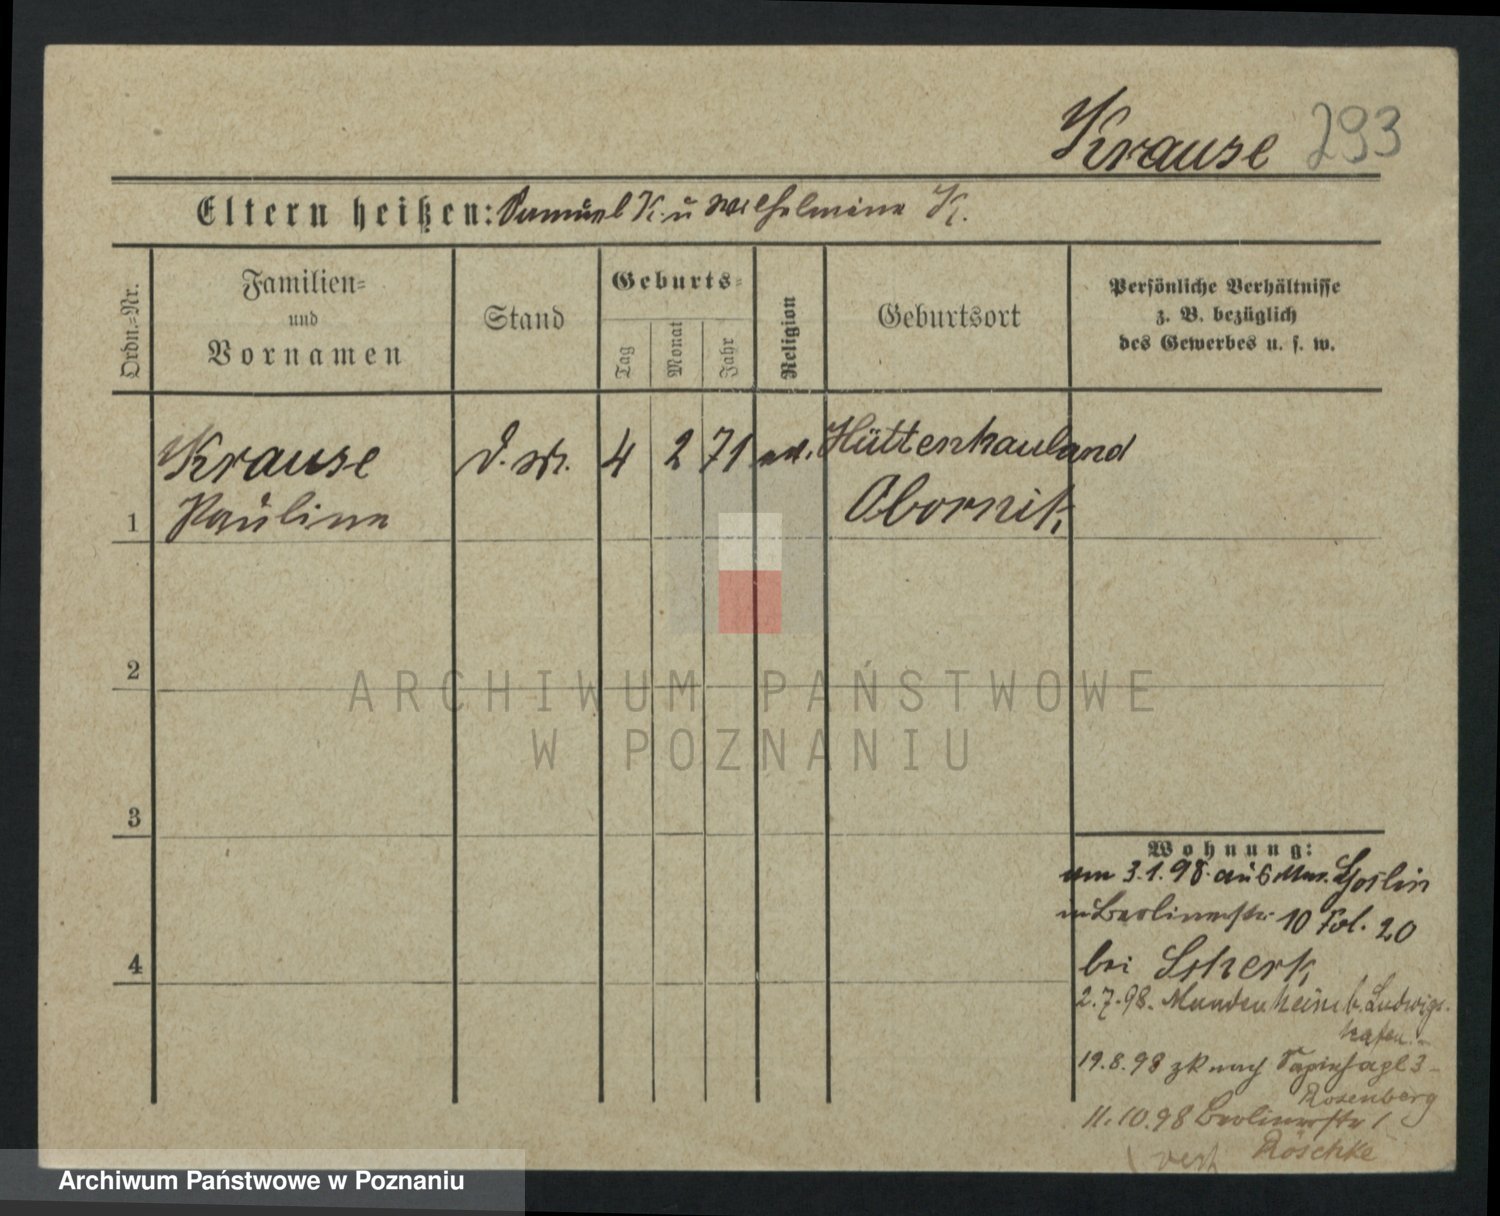 Krause 293
Eltern heißen: Samuel K. u Wilhelmine K.
Ordn.-Nr.
Familien-
und
Vornamen
Stand
Geburts-
Tag
Monat
Jahr
Religion
Geburtsort
Persönliche Verhältnisse
z. B. bezüglich
des Gewerbes u. s. w.
Krause
Pauline
4 2 71
Hüttenhauland
Obornik
1
2
3
4
ARCHIWUM PAŃSTWOWE
W POZNANIU
Wohnung:
3.1.98. aus Mur. Goslin
Berlinerstr. 10 Fol. 20
bei Scherk
2.7.98. Mundenheim b. Ludwigs-
hafen
19.8.98 zk nach Sapiehapl 3
Rosenberg
11.10.98 Berlinerstr 1
Röschke
Archiwum Państwowe w Poznaniu